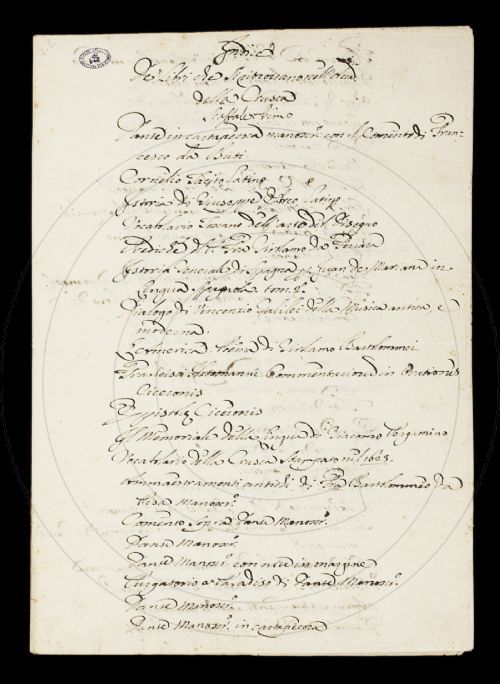 Indice
De Libri che si ritrovano nell'Acca
della Crusca
Scaffale primo
Dante in cartapecora manoscr. con il Comento di Fran-
cesco da Buti
Cornelio Tacito latino
Istoria di Giuseppe Ebreo latino
Vocabolario Toscano dell'arte del Disegno
Prediche di Fra Girolamo da Ferrara
Istoria Generale di Spagna Juan de Mariana in
lingua Spagnola tom. 2.
Dialogo di Vincenzio Galilei della Musica antica, e
moderna
Poema di Girolamo Bartolommei
Francisci Commentationes in
Ciceronis
Ciceronis
Il Memoriale della lingua di Giacomo Pergamino
Vocabolario della Crusca stampato nel 1623.
Ammaestramenti antichi di Fra Bartolommeo da
Pisa manoscr.
Comento sopra Dante Manoscr.
Dante Manoscr.
Dante Manoscr. con note in margine
Purgatorio e Paradiso di Dante Manoscr.
Dante Manoscr.
Dante Manoscr. in cartapecora